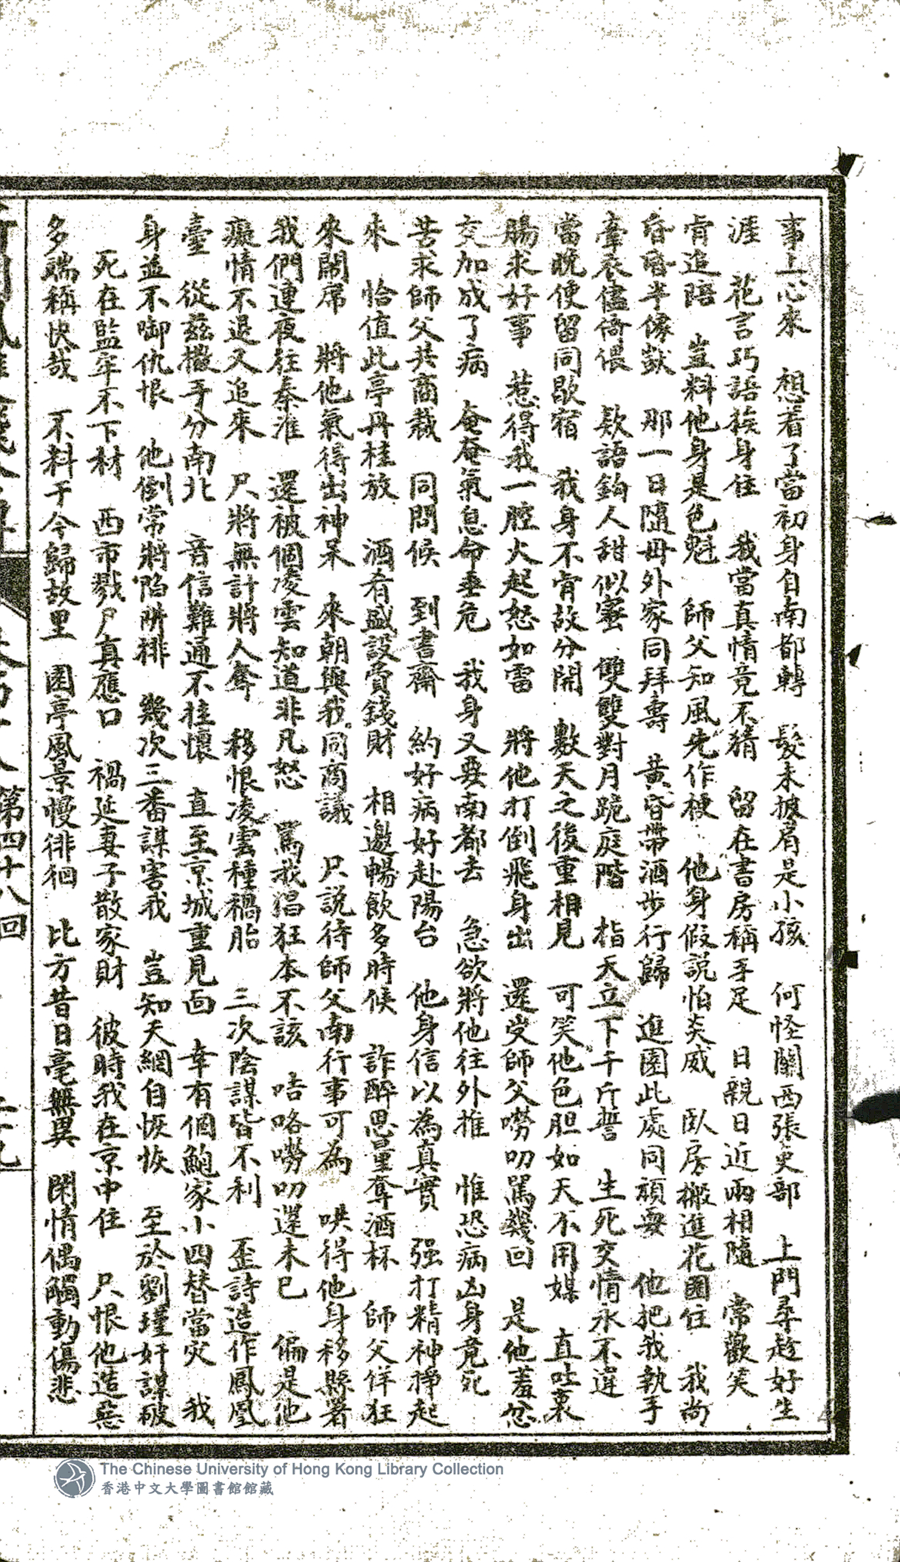 事上心來　想着了當初身自南都轉　髮未披肩是小孩　何怪關西張吏部　上門尋趁好生
涯　花言巧語挨身住　我當真情竟不猜　留在書房稱手足　日親日近兩相隨　常歡笑
肯追陪　豈料他身是色魁　師父知風先作梗　他身假說怕炎威　臥房搬進花園住　我尚
昏昏半像獃　那一日隨母外家同拜壽　黃昏帶酒步行歸　逛園此處同頑耍　他把我執手
牽衣儘倚偎　欵語鈎人甜似蜜　雙雙對月跪庭階　指天立下千斤誓　生死交情永不違
當晚便留同歇宿　我身不肯故分開　數天之後重相見　可笑他色胆如天不用媒　直吐衷
腸求好事　惹得我一腔火起怒如雷　將他打倒飛身出　還受師父嘮叨罵幾回　是他羞忿
交加成了病　奄奄氣息命垂危　我身又要南都去　急欲將他往外推　惟恐病凶身竟死
苦求師父共商裁　同問候　到書齋　約好病好赴陽台　他身信以為真實　强打精神掙起
來　恰值此亭丹桂放　酒肴盛設賞錢財　相邀暢飲多時候　詐醉思量奪酒杯　師父佯狂
來鬧席　將他氣得出神呆　來朝與我同商議　只說待師父南行事可為　哄得他身移縣署
我們連夜往秦淮　還被個凌雲知道非凡怒　罵我猖狂本不該　咭咯嘮叨還未已　偏是他
癡情不退又追來　只將無計將人奪　移恨凌雲種禍胎　三次陰謀皆不利　歪詩造作鳳凰
臺　從茲撇手分南北　音信難通不挂懷　直至京城重見面　幸有個鮑家小四替當災　我
身並不啣仇恨　他倒常將陷阱排　幾次三番謀害我　豈知天網自恢恢　至於劉瑾奸謀破
死在監牢不下材　西市戮尸真應口　禍延妻子散家財　彼時我在京中住　只恨他造惡
多端稱快哉　不料于今歸故里　園亭風景慢徘徊　比方昔日毫無異　閑情偶觸動傷悲
第四十八回
The Chinese University of Hong Kong Library Collection
香港中文大學圖書館館藏